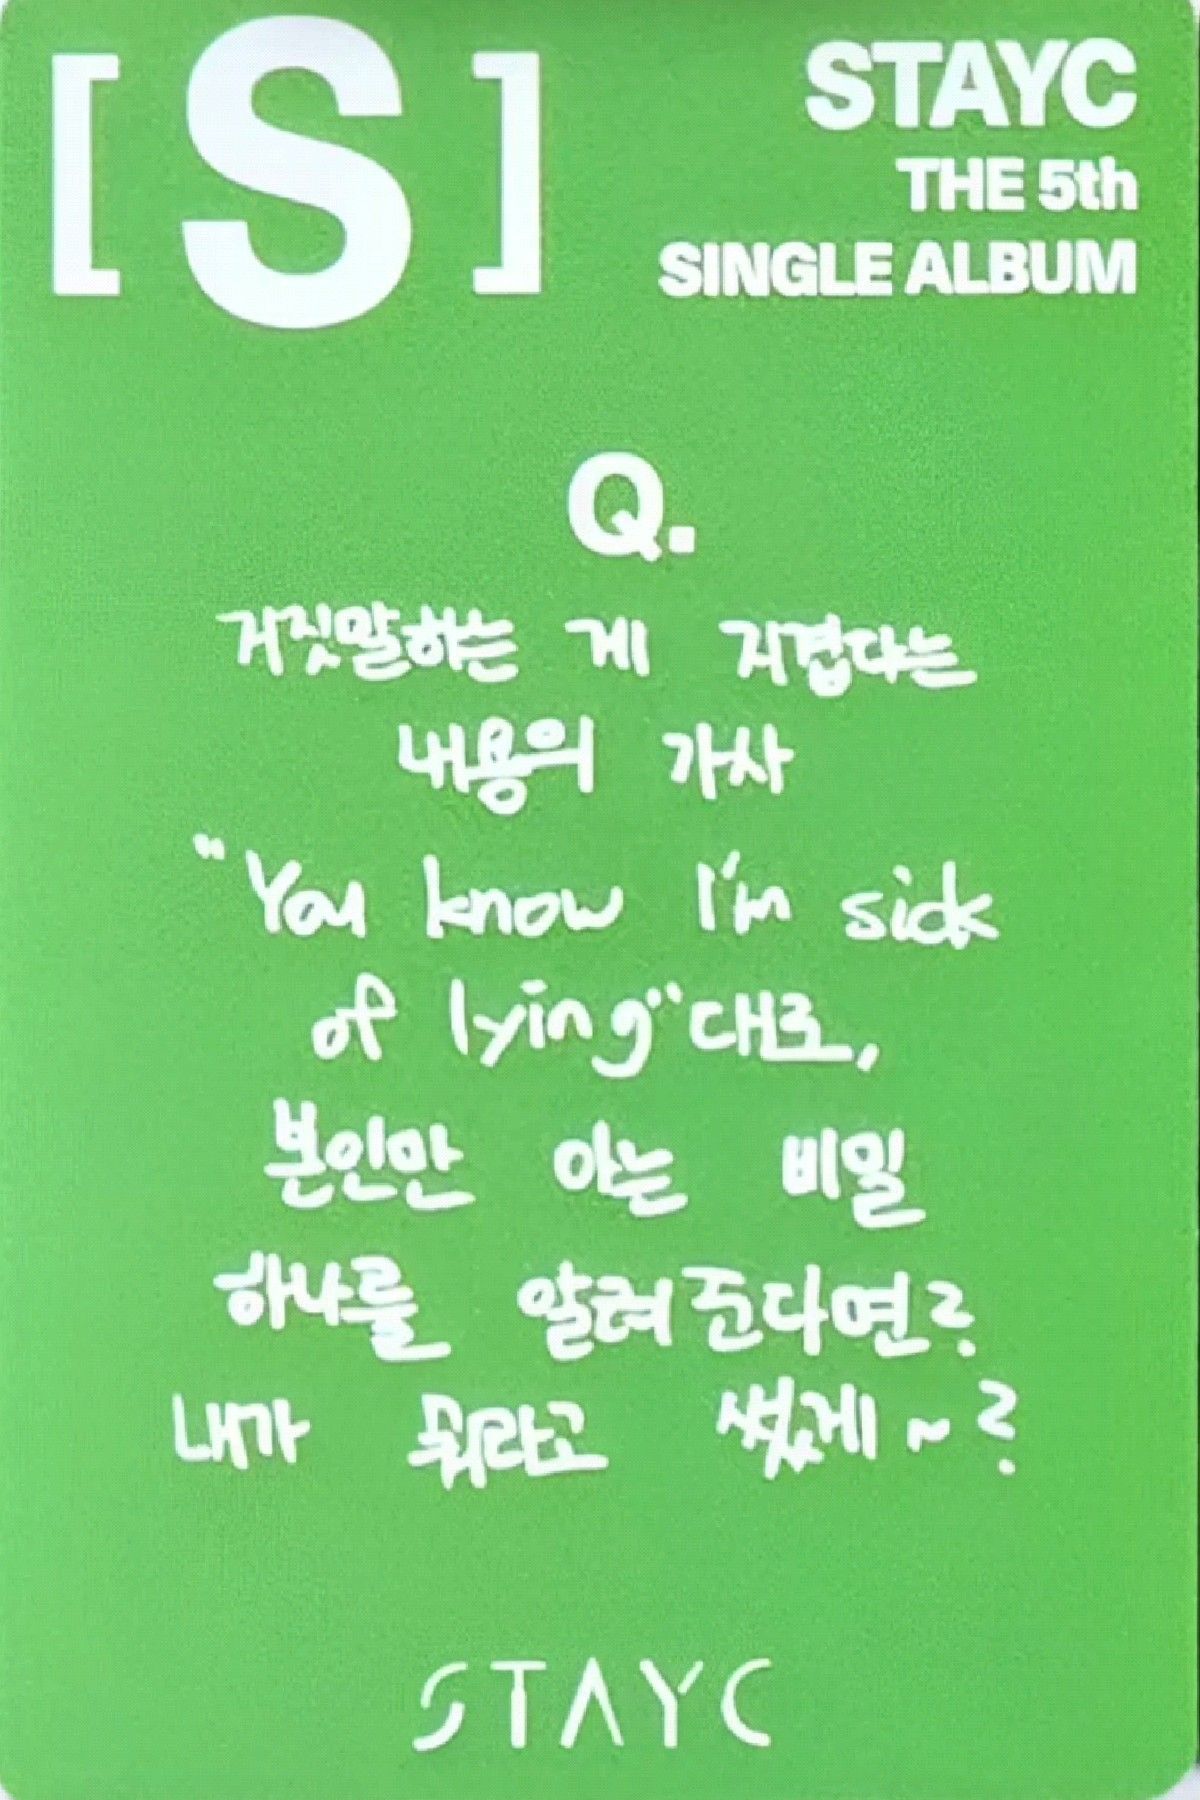 [S]
STAYC
THE 5th
SINGLE ALBUM
Q.
거짓말하는 게 지겹다는
내용의 가사
"You know I'm sick
of lying"대로,
본인만 아는 비밀
하나를 알려준다면?
내가 뭐라고 썼게~?
STAYC